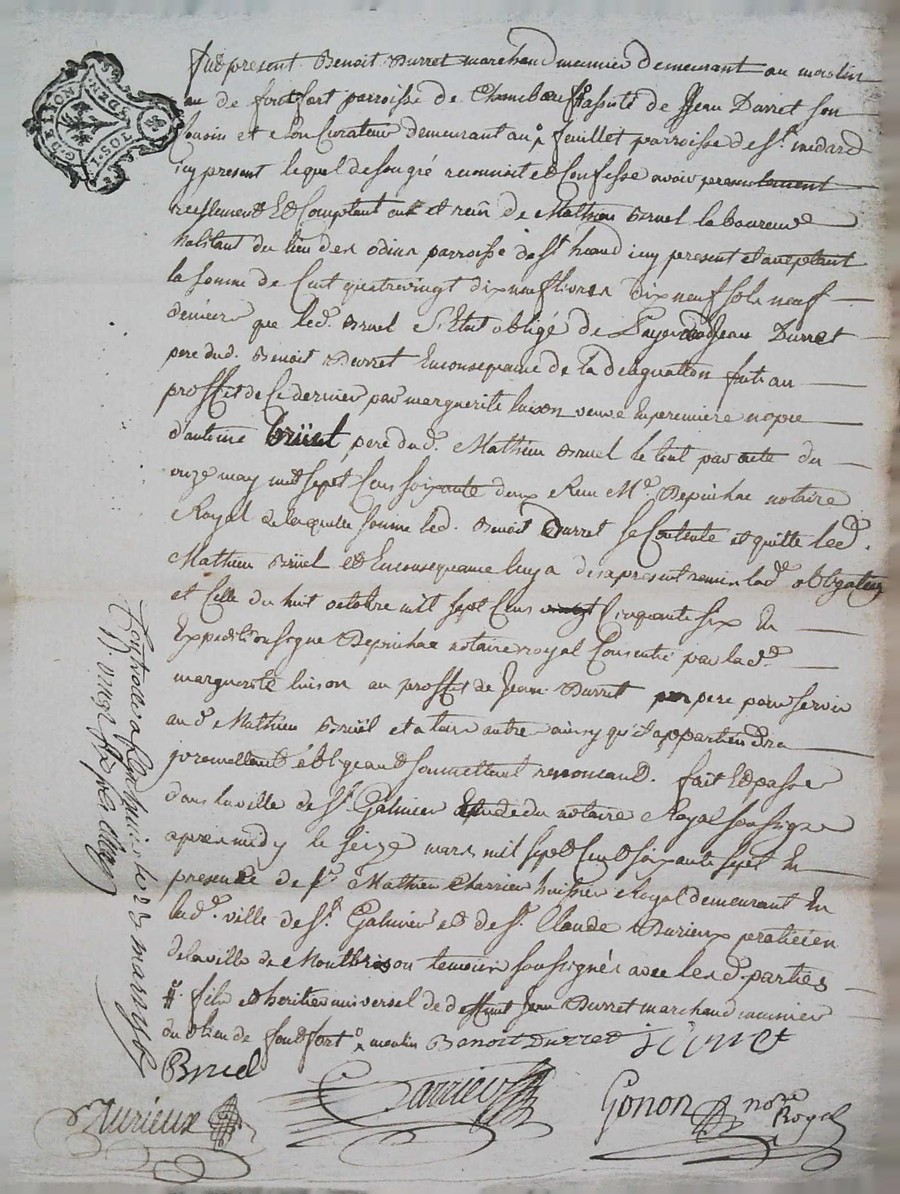 G. DE LYON
DEN. 1. SOL
fut present Benoit Durret marchand meunier demeurant au moulin
de fontfort parroisse de Chambœuf assisté de Jean Durret son
cousin et son Curateur demeurant au feuillet parroisse de St. medard
icy present lequel de son gré reconnoit et Confesse avoir presentement
reellement Et Comptant eut et receu de Mathieu Bruel laboureur
habitant du lieu des odins parroisse de St heand icy present et acceptant
la somme de Cent quatrevingt dix neuf livres dix neuf sols neuf
deniers que led. Bruel S'Etoit obligé de payer Jean Durret
pere dud. Benoit Durret En consequance de la delegation faite au
proffit de Ce dernier par marguerite luison veuve En premiere nopce
d'antoine Brüel pere dud. Mathieu Bruel le tout par acte du
onze may mil sept Cens soixante deux Receu Me. Depinhac notaire
Royal de laquelle somme led. Benoit Durret se Contente et quitte led.
Mathieu Brüel et En consequance luy a des apresent remis lad. obligation
et Celle du huit octobre mil sept Cens Cinquante six En
Expedition signé Depinhac notaire royal Consentie par lad.
marguerite luison au proffit de Jean Durret pere pour servir
aud. Mathieu Brüel et a tous autre ainsy qu'il appartiendra
promettant obligeant soumettant renoncant. fait Et passé
dans la ville de St. Galmier Etude du notaire Royal soussigné
apres midy le seize mars mil sept Cent soixante sept En
presence de Sr. Mathieu Charrier huissier Royal demeurant En
lad. ville de St. Galmier et de Sr. Claude Durieux praticien
de la ville de Montbrison temoins soussignés avec lesd. parties
# fils et heritier universel de deffunt Jean Durret marchand meunier
du lieu de fontfort moulin Benoit Durret
Bruel
Durieux Charrier Gonon nore
Royal